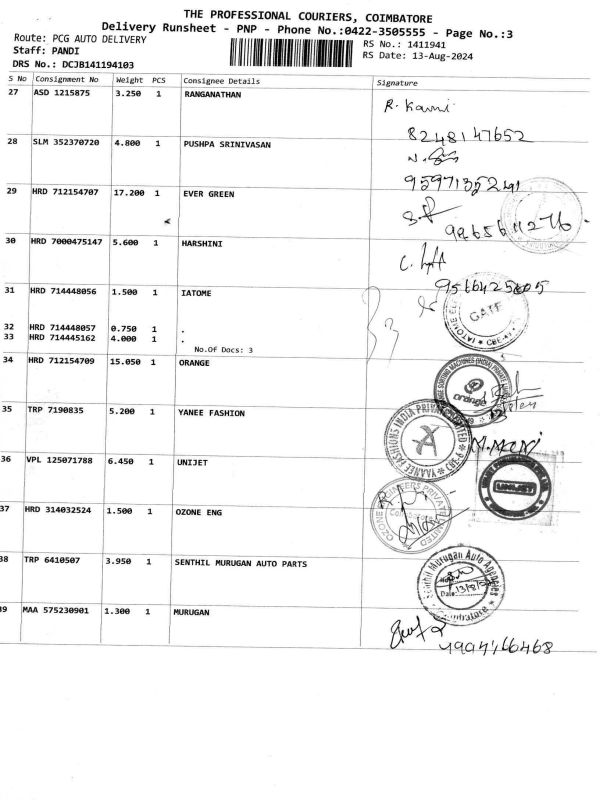 THE PROFESSIONAL COURIERS, COIMBATORE
Delivery Runsheet - PNP - Phone No.:0422-3505555 - Page No.:3
Route: PCG AUTO DELIVERY RS No.: 1411941
Staff: PANDI RS Date: 13-Aug-2024
DRS No.: DCJB141194103
S No Consignment No Weight PCS Consignee Details Signature
27 ASD 1215875 3.250 1 RANGANATHAN
8248147652
28 SLM 352370720 4.800 1 PUSHPA SRINIVASAN
29 HRD 712154707 17.200 1 EVER GREEN
30 HRD 7000475147 5.600 1 HARSHINI
31 HRD 714448056 1.500 1 IATOME
GATE
32 HRD 714448057 0.750 1 .
33 HRD 714445162 4.000 1 .
No.Of Docs: 3
34 HRD 712154709 15.050 1 ORANGE
orange
35 TRP 7190835 5.200 1 YANEE FASHION
YAANEE FASHIONS INDIA PRIVATE LIMITED
M.MANI
36 VPL 125071788 6.450 1 UNIJET
UNIJET
37 HRD 314032524 1.500 1 OZONE ENG
38 TRP 6410507 3.950 1 SENTHIL MURUGAN AUTO PARTS
Senthil Murugan Auto Agencies
Date:
Coimbatore
39 MAA 575230901 1.300 1 MURUGAN